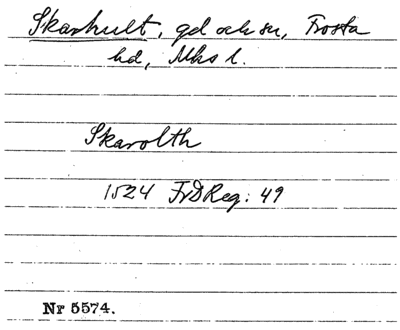 Skarhult, gd och sn, Frosta
hd, Mhs l.
Skarolth
1524 FrDReg: 49
Nr 5574.